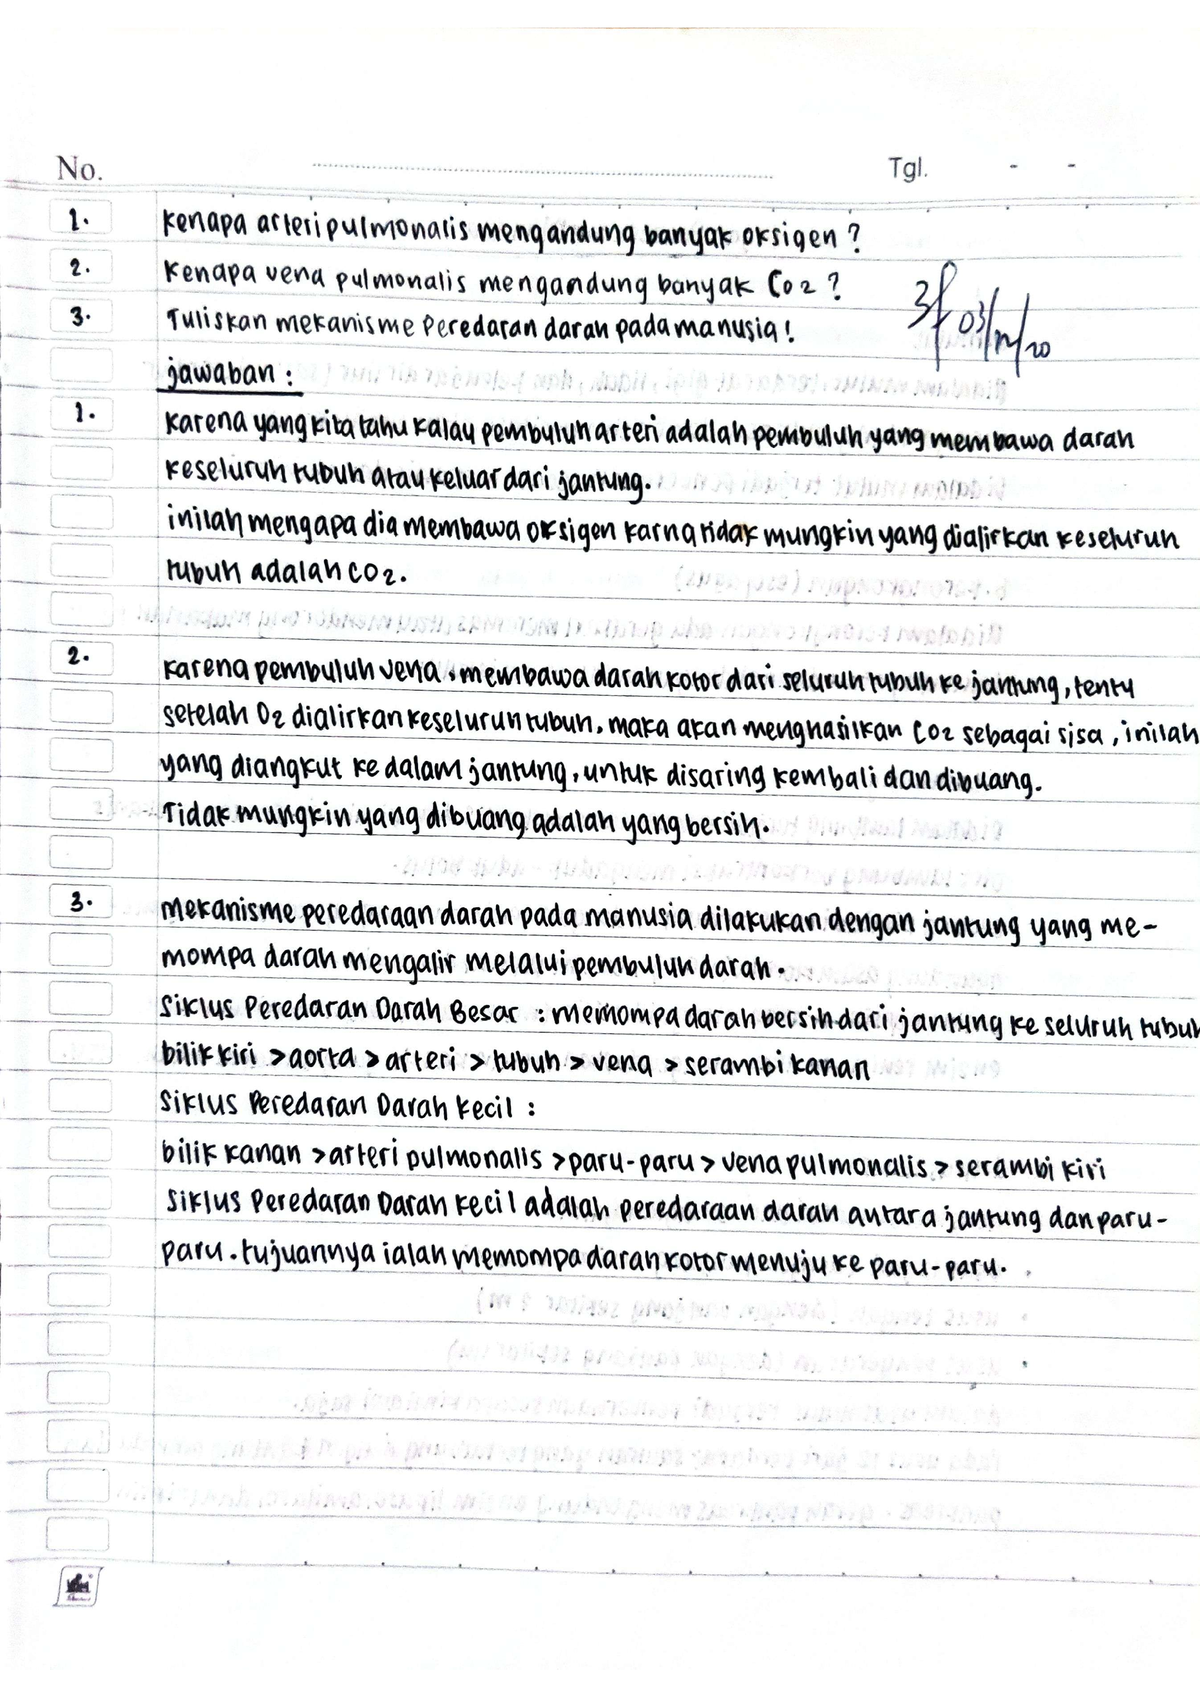 No.
Tgl. - -
1. kenapa arteri pulmonalis mengandung banyak oksigen ?
2. kenapa vena pulmonalis mengandung banyak CO2 ?
3. Tuliskan mekanisme Peredaran darah pada manusia !
03/12/20
jawaban :
1. karena yang kita tahu kalau pembuluh arteri adalah pembuluh yang membawa darah
keseluruh tubuh atau keluar dari jantung.
inilah mengapa dia membawa oksigen karna tidak mungkin yang dialirkan keseluruh
tubuh adalah CO2.
2. karena pembuluh vena, membawa darah kotor dari seluruh tubuh ke jantung, tentu
setelah O2 dialirkan keseluruh tubuh, maka akan menghasilkan CO2 sebagai sisa, inilah
yang diangkut ke dalam jantung, untuk disaring kembali dan dibuang.
Tidak mungkin yang dibuang adalah yang bersih.
3. mekanisme peredaraan darah pada manusia dilakukan dengan jantung yang me-
mompa darah mengalir melalui pembuluh darah.
Siklus Peredaran Darah Besar : memompa darah bersih dari jantung ke seluruh tubuh
bilik kiri > aorta > arteri > tubuh > vena > serambi kanan
Siklus Peredaran Darah Kecil :
bilik kanan > arteri pulmonalis > paru-paru > vena pulmonalis > serambi kiri
Siklus Peredaran Darah Kecil adalah peredaraan darah antara jantung dan paru-
paru. tujuannya ialah memompa darah kotor menuju ke paru-paru.